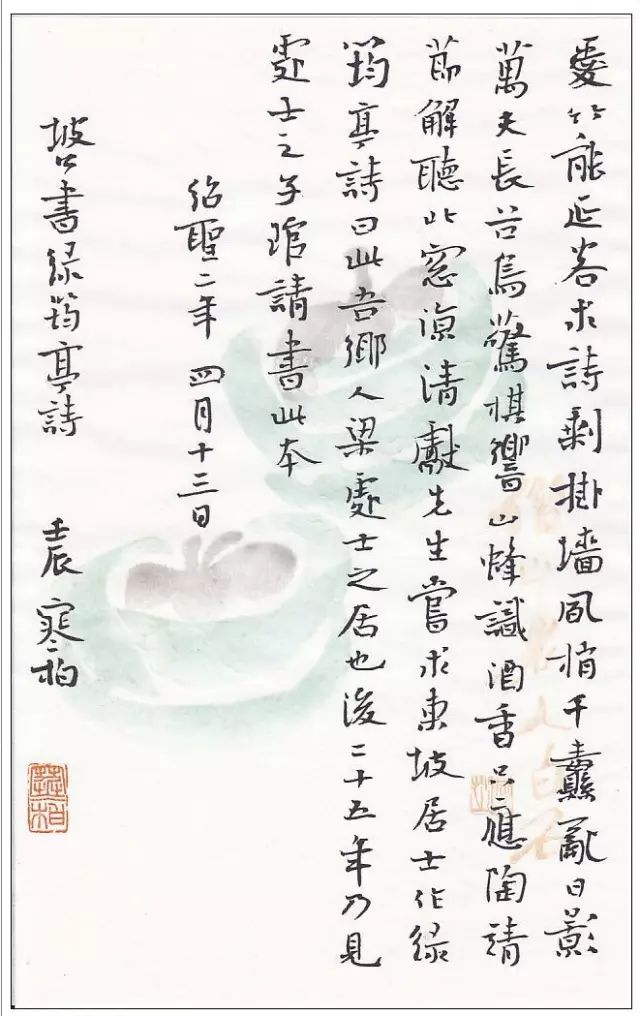 愛竹能延客求詩剩掛墻風梢千纛亂日影
萬夫長谷鳥驚棋響山蜂識酒香只應陶靖
節解聽北窓涼清獻先生嘗求東坡居士作綠
筠亭詩曰此吾鄉人梁處士之居也後二十五年乃見
處士之子琯請書此本
紹聖二年 四月十三日
坡公書綠筠亭詩 壬辰 寒柏